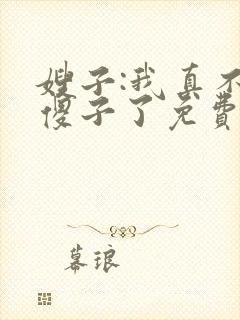 嫂子:我真不
傻子了免费
幕琅